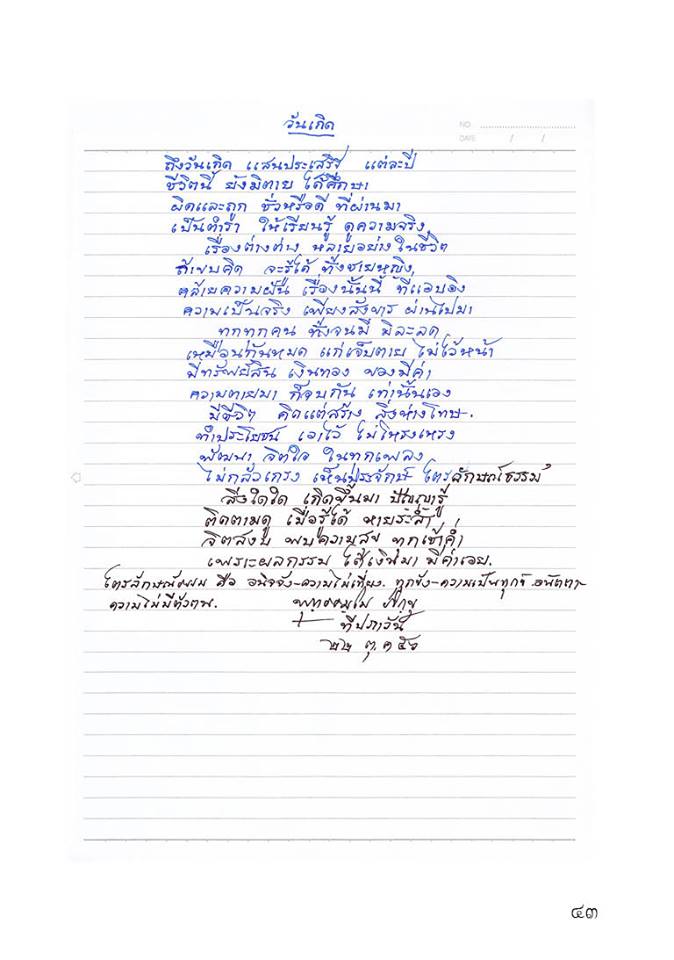 วันเกิด
NO
DATE / /
ถึงวันเกิด แสนประเสริฐ แต่ละปี
ชีวิตนี้ ยังมิตาย ได้ศึกษา
ผิดและถูก ชั่วหรือดี ที่ผ่านมา
เป็นตำรา ให้เรียนรู้ ดูความจริง
เรื่องต่างต่าง หลายอย่าง ในชีวิต
ถ้าขบคิด จะรู้ได้ ทั้งชายหญิง
คล้ายความฝัน เรื่องนั้นนี้ ที่แอบอิง
ความเป็นจริง เพียงสังขาร ผ่านไปมา
ทุกทุกคน ทั้งจนมี มิละลด
เหมือนกันหมด แก่เจ็บตาย ไม่ไว้หน้า
มีทรัพย์สิน เงินทอง ของมีค่า
ความตายมา ก็จบกัน เท่านั้นเอง
มีชีวิต คิดแต่สร้าง สิ่งห่างโทษ
ทำประโยชน์ เอาไว้ ไม่โหรงเหรง
พัฒนา จิตใจ ในทุกเพลง
ไม่กลัวเกรง เห็นประจักษ์ ไตรลักษณ์ธรรม
สิ่งใดใด เกิดขึ้นมา ปัญญารู้
ติดตามดู เมื่อรู้ได้ หายระส่ำ
จิตสงบ พบความสุข ทุกเช้าค่ำ
เพราะผลกรรม ได้เกิดมา มีค่าเอย.
ไตรลักษณ์ คือ อนิจจัง-ความไม่เที่ยง. ทุกขัง-ความเป็นทุกข์ อนัตตา-
ความไม่มีตัวตน. ภิกขุ
ทีปภาวัน
๒๒ ต.ค ๕๖
๔๓